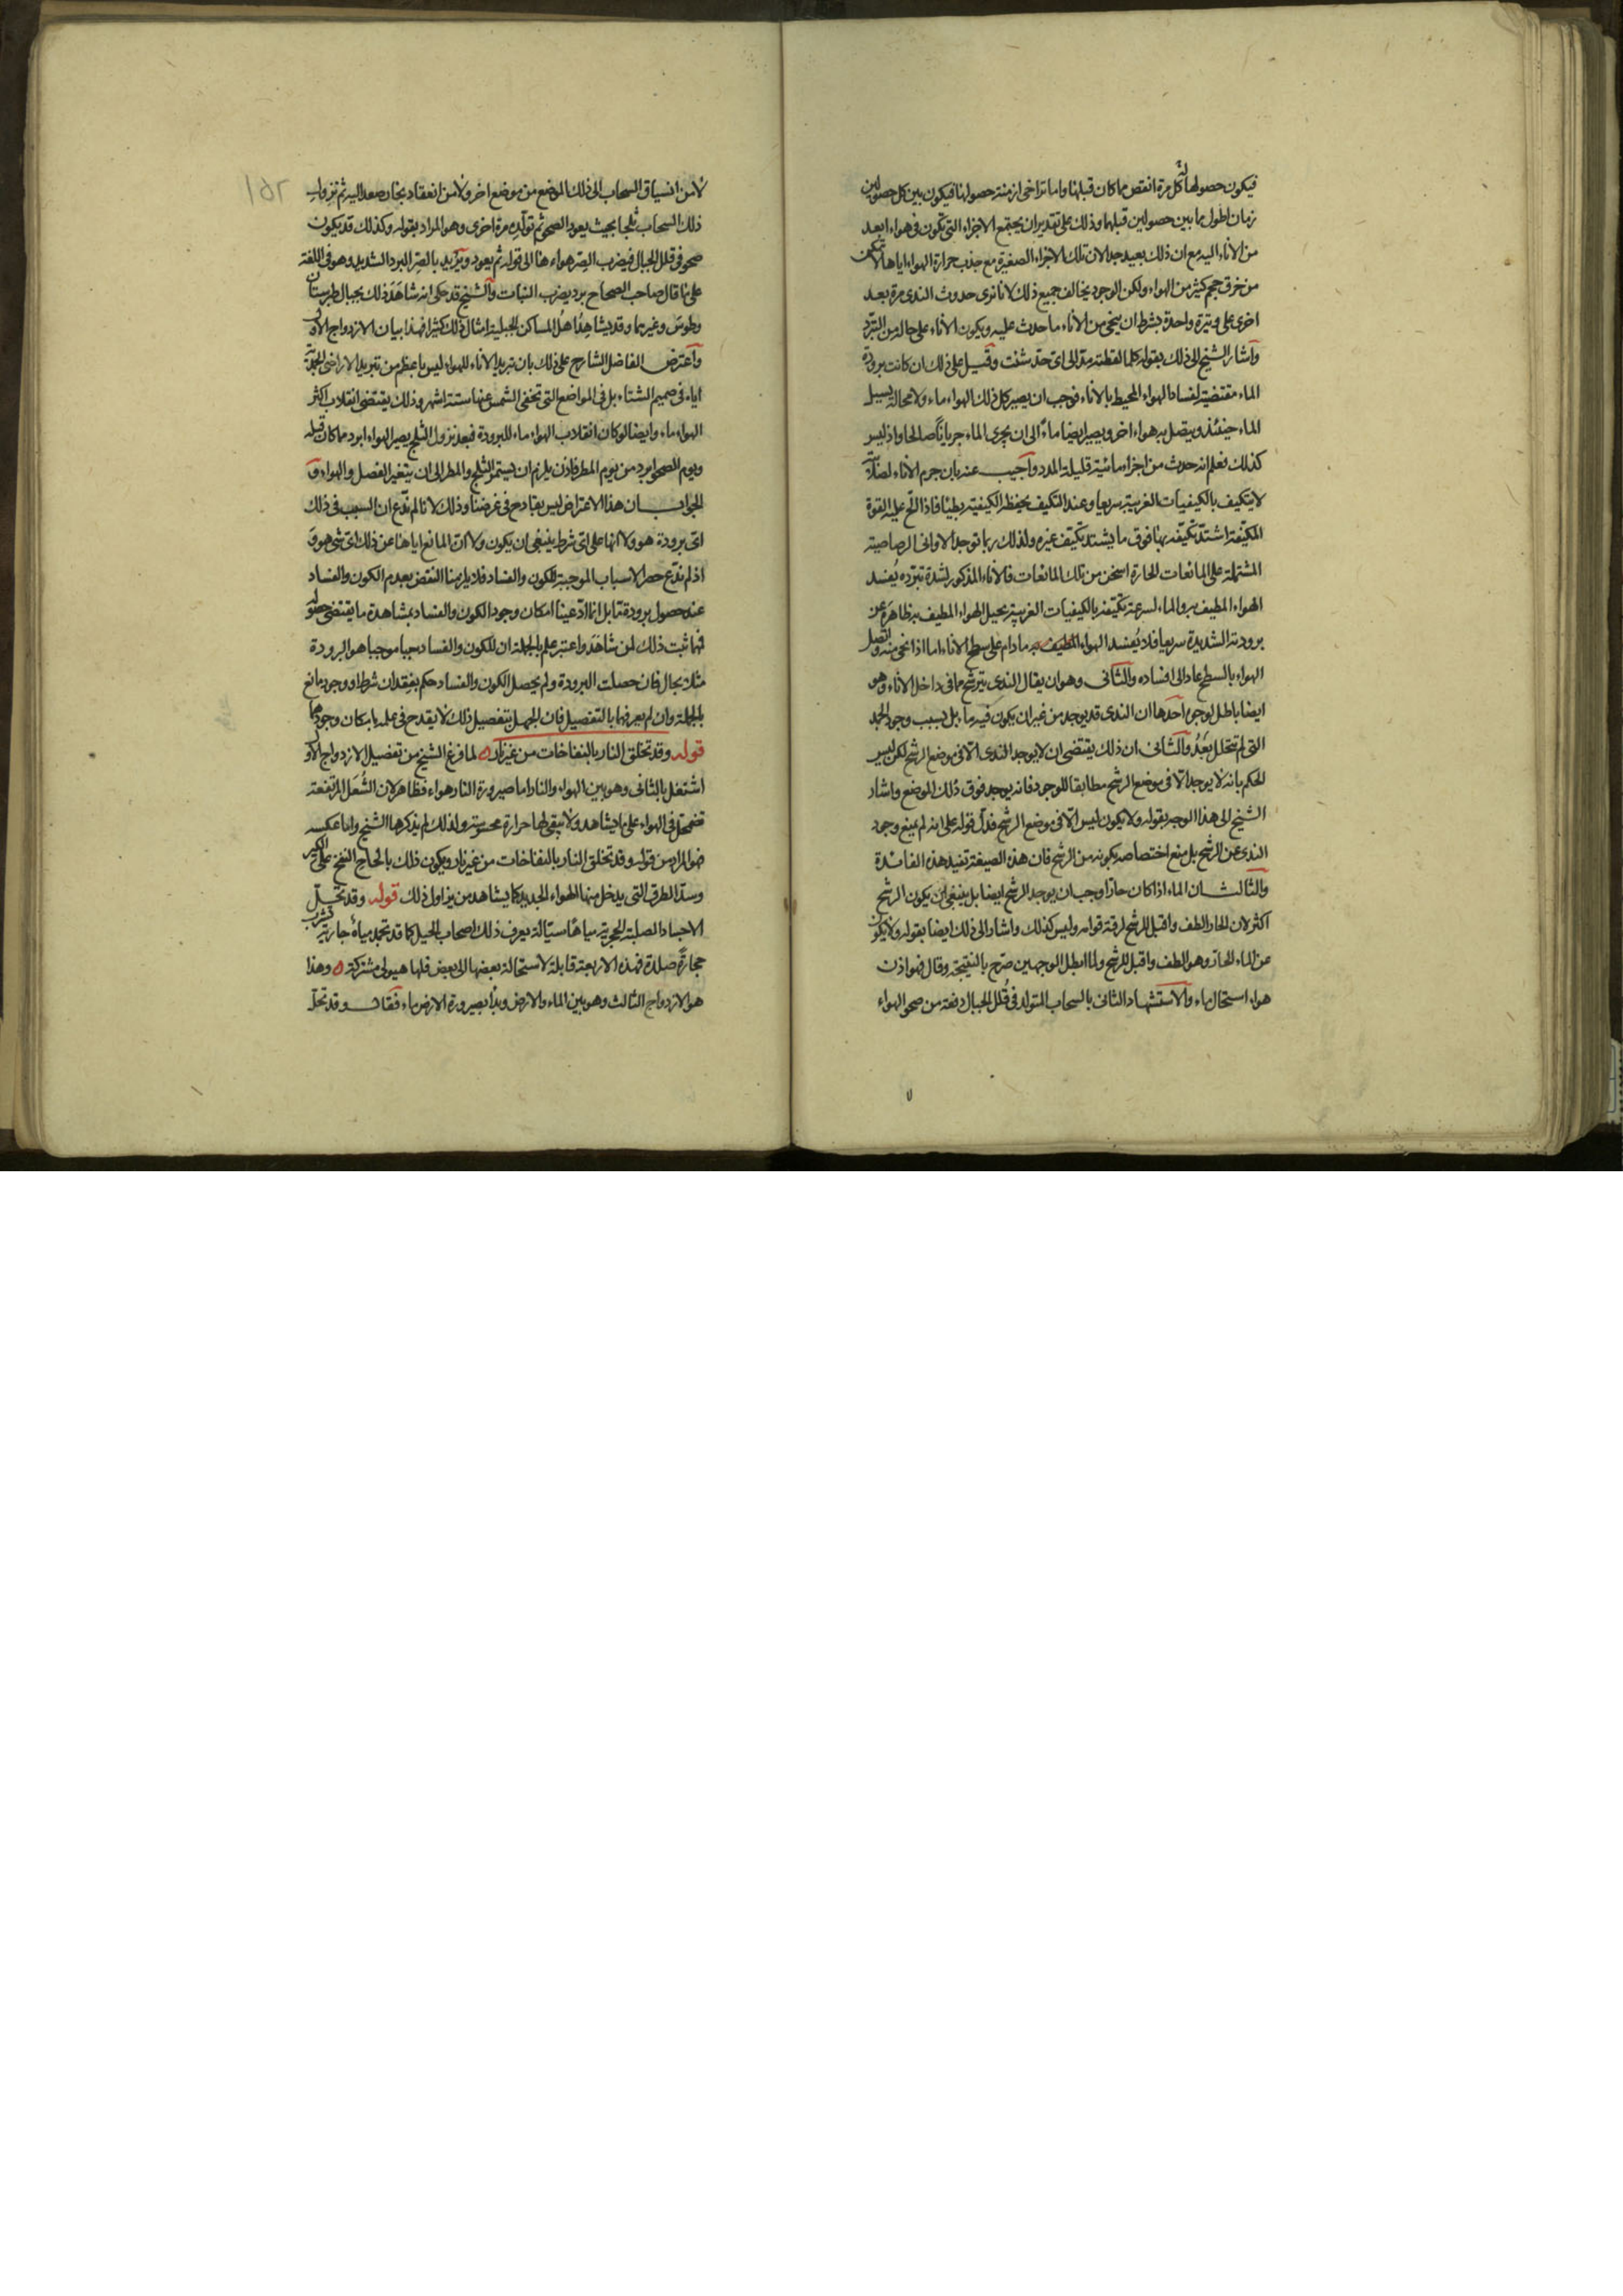 فيكون حصولها كل مرة انقص مما كان قبلها واما تراخى ازمنة حصولها فيكون بين كل حصولين
زمان اطول مما بين حصولين قبلهما وذلك على تقدير ان يجتمع الاجزاء التى تكون فى هواء ابعد
من الاناء اليه مع ان ذلك بعيد جدا لان تلك الاجزاء الصغيرة مع جذب حرارة الهواء اياها لا تمكن
من خرق حجم كثير من الهواء ولكن الوجود يخالف جميع ذلك لانا نرى حدوث الندى مرة بعد
اخرى على وتيرة واحدة بشرط ان ينحى من الاناء ما حدث عليه ويكون الاناء على حاله من التبرد
واشار الشيخ الى ذلك بقوله كلما لقطته مد الى اى حد شئت وقيل على ذلك ان كانت برودة
الماء مقتضية لفساد الهواء المحيط بالاناء فوجب ان يصير كل ذلك الهواء ماء ولا محالة يسيل
الماء حينئذ ويتصل به هواء اخر ويصير ايضا ماء الى ان يجرى الماء جريانا صالحا واذ ليس
كذلك فعلم انه حدث من اجزاء مائية قليلة المدد واجيب عنه بان جرم الاناء لصلابته
لا يتكيف بالكيفيات الغريبة سريعا وعند التكيف يحفظ الكيفية بطيئا فاذا الح عليه القوة
المكيفة اشتد تكيفه بها فوق ما يشتد تكيف غيره ولذلك ربما توجد الاوانى الرصاصية
المشتملة على المائعات الحارة اسخن من تلك المائعات فالاناء المذكور لشدة تبرده يفسد
الهواء المطيف به والماء لسرعة تكيفه بالكيفيات الغريبة يحيل الهواء المطيف به ظاهره عن
برودته الشديدة سريعا فلا يفسد الهواء المطيف به ما دام على سطح الاناء اما اذا نحى منه واتصل
الهواء بالسطح عاد الى افساده والثانى وهو ان يقال الندى يترشح مما فى داخل الاناء وهو
ايضا باطل لوجوه احدها ان الندى قد يوجد من غير ان يكون فيه ماء بل بسبب وجود الجمد
التى لم يتحلل بعد والثانى ان ذلك يقتضى ان لا يوجد الندى الا فى موضع الرشح لكن ليس
الحكم بانه لا يوجد الا فى موضع الرشح مطابقا للوجود فانه يوجد فوق ذلك الموضع واشار
الشيخ الى هذا الوجه بقوله ولا يكون ليس الا فى موضع الرشح فدل قوله على انه لم يمنع وجود
الندى عن الرشح بل منع اختصاصه بكونه من الرشح فان هذه الصيغة تفيد هذه الفائدة
والثالث ان الماء اذا كان حارا وجب ان يوجد الرشح ايضا بل ينبغى ان يكون الرشح
اكثر لان الحار الطف واقبل للرشح لرقة قوامه وليس كذلك واشار الى ذلك ايضا بقوله ولا يكون
عن الماء الحار وهو الطف واقبل للرشح ولما ابطل الوجهين صرح بالنتيجة وقال فهو اذن
هواء استحال ماء والاستشهاد الثانى بالسحاب المتولد فى قلل الجبال دفعة من صحو الهواء
لا من انسياق السحاب الى ذلك الموضع من موضع اخر ولا من انعقاد بخار صعد اليه ثم نزول
ذلك السحاب ثلجا بحيث يعود الصحو ثم تولده مرة اخرى وهو المراد بقوله وكذلك قد يكون
صحو فى قلل الجبال فيضرب الصر هواء هنا الى قوله ثم يعود ويريد بالصر البرد الشديد وهو فى اللغة
على ما قال صاحب الصحاح برد يضرب النبات والشيخ قد حكى انه شاهد ذلك بجبال طبرستان
وطوس وغيرهما وقد يشاهد اهل المساكن الجبلية امثال ذلك كثيرا فهذا بيان الازدواج الاول
واعترض الفاضل الشارح على ذلك بان تبريد الاناء للهواء ليس باعظم من تبريد الاراضى الجمدية
اياه فى صميم الشتاء بل فى المواضع التى تخفى الشمس عنها ستة اشهر وذلك يقتضى انقلاب اكثر
الهواء ماء وايضا لو كان انقلاب الهواء ماء للبرودة فبعد نزول الثلج يصير الهواء ابرد مما كان قبله
ويوم الصحو ابرد من يوم المطر فاذن يلزم ان يستمر الثلج والمطر الى ان يتغير الفصل والهواء و
الجواب ان هذا الاعتراض ليس بقادح فى غرضنا وذلك لانا لم ندع ان السبب فى ذلك
اى برودة هو ولا انها على اى شرط ينبغى ان يكون ولا ان المانع اياها عن ذلك اى شئ هو و
اذ لم ندع حصر الاسباب الموجبة للكون والفساد فلا يلزمنا النقض بعدم الكون والفساد
عند حصول برودة ما بل انما ادعينا امكان وجود الكون والفساد بمشاهدة ما يقتضى حصوله
فمهما ثبت ذلك لمن شاهد واعتبر علم بالجملة ان للكون والفساد سببا موجبا هو البرودة
مثلا بحال فان حصلت البرودة ولم يحصل الكون والفساد حكم بفقدان شرط او وجود مانع
بالجملة وان لم يعرفها بالتفصيل فان الجهل بتفصيل ذلك لا يقدح فى علمه بامكان وجودهما
قوله وقد تخلق النار بالنفاخات من غير نار لما فرغ الشيخ من تفصيل الازدواج الاول
اشتغل بالثانى وهو بين الهواء والنار اما صيرورة النار هواء فظاهر لان الشعل المرتفعة
تضمحل فى الهواء على ما يشاهد ولا تبقى لها حرارة محسوسة ولذلك لم يذكرها الشيخ واما عكسه
فهو المراد من قوله وقد تخلق النار بالنفاخات من غير نار ويكون ذلك بالحاح النفخ على الكير
وسد الطرق التى يدخل منها الهواء الجديد كما يشاهد من يزاول ذلك قوله وقد تحل
الاجساد الصلبة الحجرية مياها سيالة يعرف ذلك اصحاب الحيل كما قد تجمد مياه جارية تشرب
حجارة صلدة فهذه الاربعة قابلة لاستحالة بعضها الى بعض فلها هيولى مشتركة وهذا
هو الازدواج الثالث وهو بين الماء والارض وبدأ بصيرورة الارض ماء فقال وقد تحل